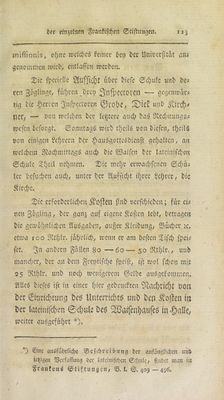 der einzelnen Frankischen Stiftungen. 113
mißnis, ohne welches keiner bey der Universität an-
genommen wird, entlassen werden.
Die spezielle Aufsicht über diese Schule und de-
ren Zöglinge, führen drey Inspectoren — gegenwär-
tig die Herren Inspectoren Grobe, Diek und Kirch-
ner, — von welchen der letztere auch das Rechnungs-
wesen besorgt. Sonntags wird theils von diesen, theils
von einigen Lehrern der Hausgottesdienst gehalten, an
welchen Nachmittags auch die Waisen der lateinischen
Schule Theil nehmen. Die mehr erwachsenen Schü-
ler besuchen auch, unter der Aufsicht ihrer Lehrer, die
Kirche.
Die erforderlichen Kosten sind verschieden; für ei-
nen Zögling, der ganz auf eigene Kosten lebt, betragen
die gewöhnlichen Ausgaben, ausser Kleidung, Bücher ꝛc.
etwa 100 Rthlr. jährlich, wenn er am besten Tisch spei-
set. In andern Fällen 80 — 60 — 50 Rthlr., und
mancher, der an dem Freytische speist, ist wol schon mit
25 Rthlr. und noch wenigerem Gelde ausgekommen.
Alles dieses ist in einer hier gedruckten Nachricht von
der Einrichtung des Unterrichts und den Kosten in
der lateinischen Schule des Waisenhauses in Halle,
weiter ausgeführt *).
*) Eine ausführliche Beschreibung der anfänglichen und
letzigen Verfassung der lateinischen Schule, findet man in
Frankens Stiftungen, B. I. S. 409 — 496.